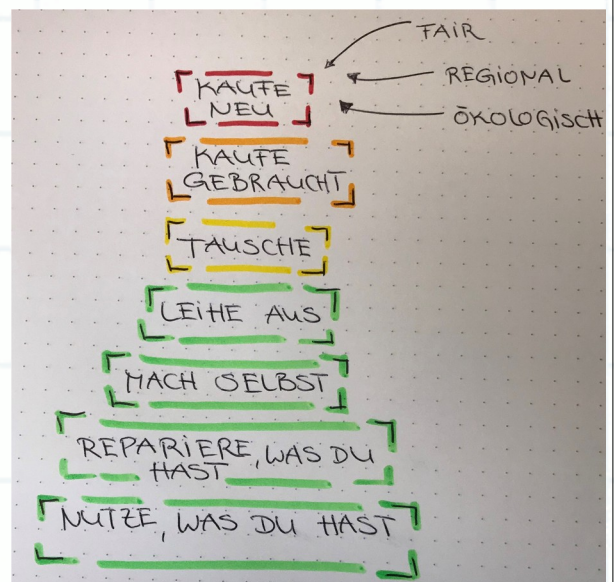 FAIR
REGIONAL
ÖKOLOGISCH
KAUFE
NEU
KAUFE
GEBRAUCHT
TAUSCHE
LEIHE AUS
MACH SELBST
REPARIERE, WAS DU
HAST
NUTZE, WAS DU HAST